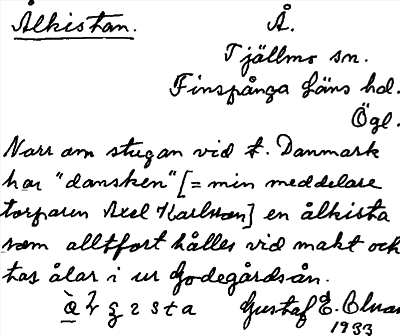 Ålkistan. Å.
Tjällmo sn.
Finspånga läns hd.
Ögl.
Norr om stugan vid t. Danmark
har "dansken" [= min meddelare
torparen Axel Karlsson] en ålkista
som alltfort hålles vid makt och
tas ålar i ur Godegårdsån.
Gustaf E.
1933